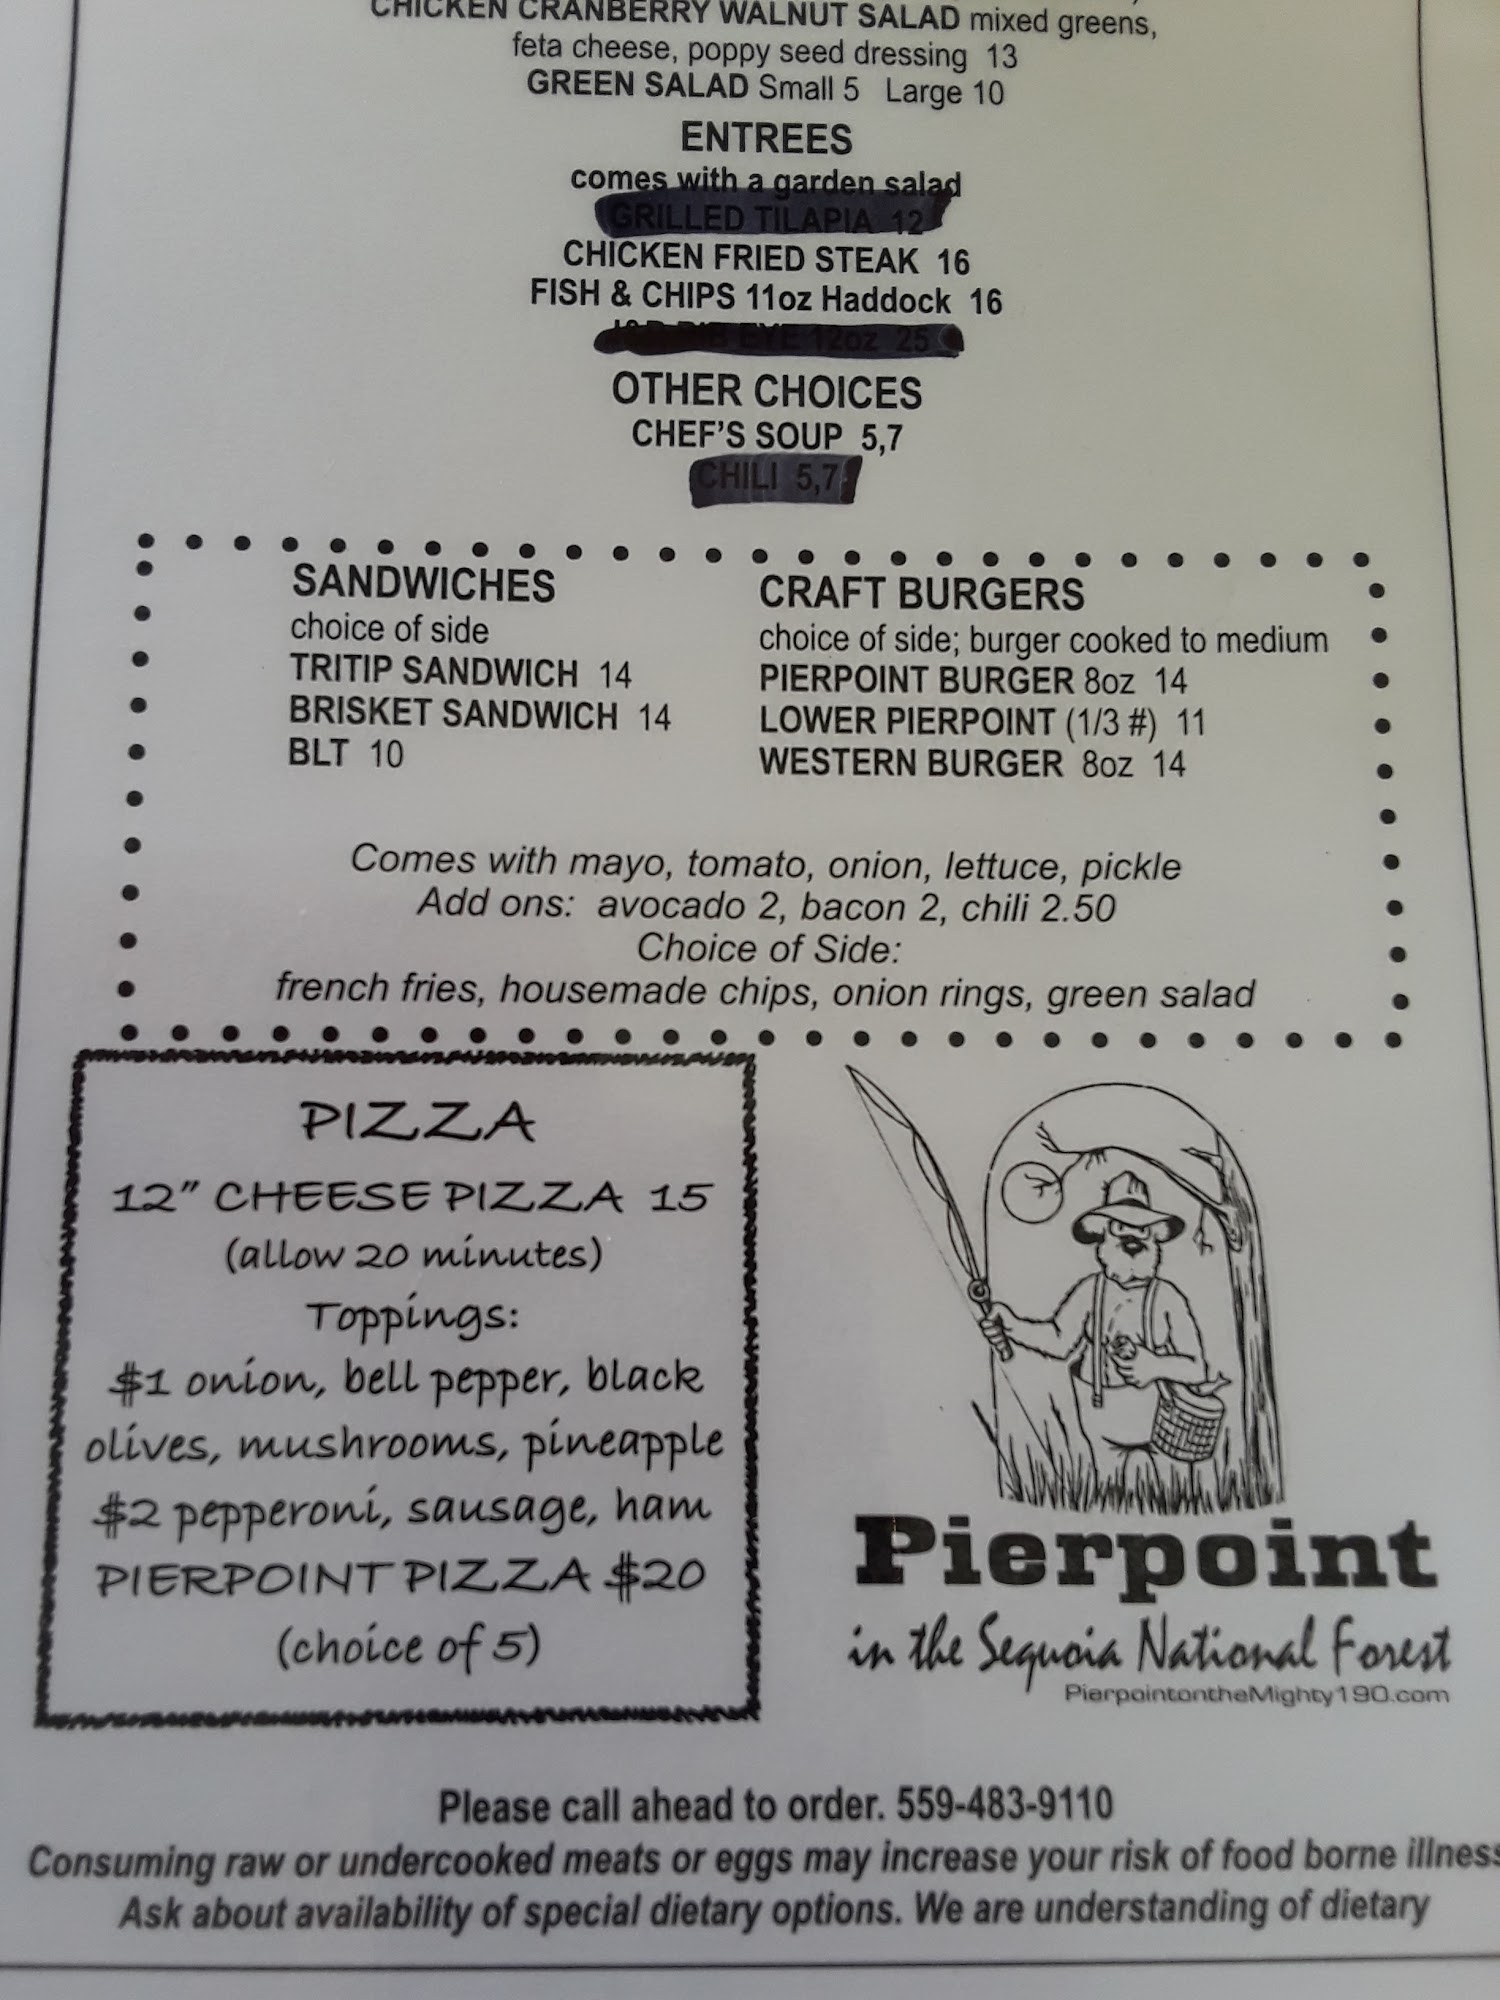 CHICKEN CRANBERRY WALNUT SALAD mixed greens,
feta cheese, poppy seed dressing 13
GREEN SALAD Small 5 Large 10
ENTREES
comes with a garden salad
GRILLED TILAPIA 12
CHICKEN FRIED STEAK 16
FISH & CHIPS 11oz Haddock 16
RIB EYE 12oz 25
OTHER CHOICES
CHEF'S SOUP 5,7
CHILI 5,7
SANDWICHES
choice of side
TRITIP SANDWICH 14
BRISKET SANDWICH 14
BLT 10
CRAFT BURGERS
choice of side; burger cooked to medium
PIERPOINT BURGER 8oz 14
LOWER PIERPOINT (1/3 #) 11
WESTERN BURGER 8oz 14
Comes with mayo, tomato, onion, lettuce, pickle
Add ons: avocado 2, bacon 2, chili 2.50
Choice of Side:
french fries, housemade chips, onion rings, green salad
PIZZA
12" CHEESE PIZZA 15
(allow 20 minutes)
Toppings:
$1 onion, bell pepper, black
olives, mushrooms, pineapple
$2 pepperoni, sausage, ham
PIERPOINT PIZZA $20
(choice of 5)
Pierpoint
in the Sequoia National Forest
PierpointontheMighty190.com
Please call ahead to order. 559-483-9110
Consuming raw or undercooked meats or eggs may increase your risk of food borne illness
Ask about availability of special dietary options. We are understanding of dietary